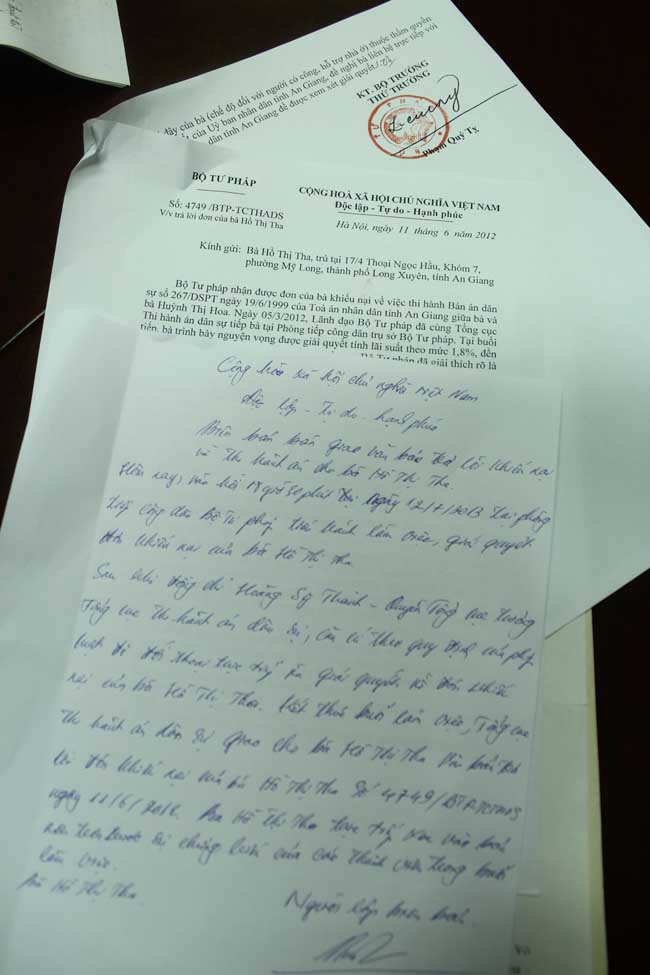 đây của bà (chế độ đối với người có công, hỗ trợ nhà ở) thuộc thẩm quyền
của Uỷ ban nhân dân tỉnh An Giang, đề nghị bà liên hệ trực tiếp với
dân tỉnh An Giang để được xem xét giải quyết./.
KT. BỘ TRƯỞNG
THỨ TRƯỞNG
Phạm Quý Tỵ
BỘ TƯ PHÁP
CỘNG HOÀ XÃ HỘI CHỦ NGHĨA VIỆT NAM
Độc lập - Tự do - Hạnh phúc
Số: 4749 /BTP-TCTHADS
V/v trả lời đơn của bà Hồ Thị Tha
Hà Nội, ngày 11 tháng 6 năm 2012
Kính gửi: Bà Hồ Thị Tha, trú tại 17/4 Thoại Ngọc Hầu, Khóm 7,
phường Mỹ Long, thành phố Long Xuyên, tỉnh An Giang
Bộ Tư pháp nhận được đơn của bà khiếu nại về việc thi hành Bản án dân
sự số 267/DSPT ngày 19/6/1999 của Toà án nhân dân tỉnh An Giang giữa bà và
bà Huỳnh Thị Hoa. Ngày 05/3/2012, Lãnh đạo Bộ Tư pháp đã cùng Tổng cục
Thi hành án dân sự tiếp bà tại Phòng tiếp công dân trụ sở Bộ Tư pháp. Tại buổi
tiếp, bà trình bày nguyện vọng được giải quyết tính lãi suất theo mức 1,8%, đến
Bộ Tư pháp đã giải thích rõ là
Cộng hòa xã hội chủ nghĩa Việt Nam
Độc lập - Tự do - hạnh phúc
Biên bản bàn giao văn bản trả lời khiếu nại
và thi hành án cho bà Hồ Thị Tha.
Hôm nay, vào hồi giờ phút ngày 12/7/2013 tại phòng
tiếp công dân Bộ Tư pháp tiến hành làm việc, giải quyết
đơn khiếu nại của bà Hồ Thị Tha.
Sau khi đồng chí Hoàng Sỹ Thành - Quyền Tổng cục trưởng
Tổng cục thi hành án dân sự, căn cứ theo quy định của pháp
luật đã đối thoại trực tiếp giải quyết đơn khiếu
nại của bà Hồ Thị Tha. Kết thúc buổi làm việc, Tổng cục
thi hành án dân sự giao cho bà Hồ Thị Tha văn bản trả
lời đơn khiếu nại của bà Hồ Thị Tha số 4749/BTP-TCTHADS
ngày 11/6/2012. Bà Hồ Thị Tha trực tiếp vào biên
bản trước sự chứng kiến của các thành viên trong buổi
làm việc.
Bà Hồ Thị Tha.
Người lập biên bản.